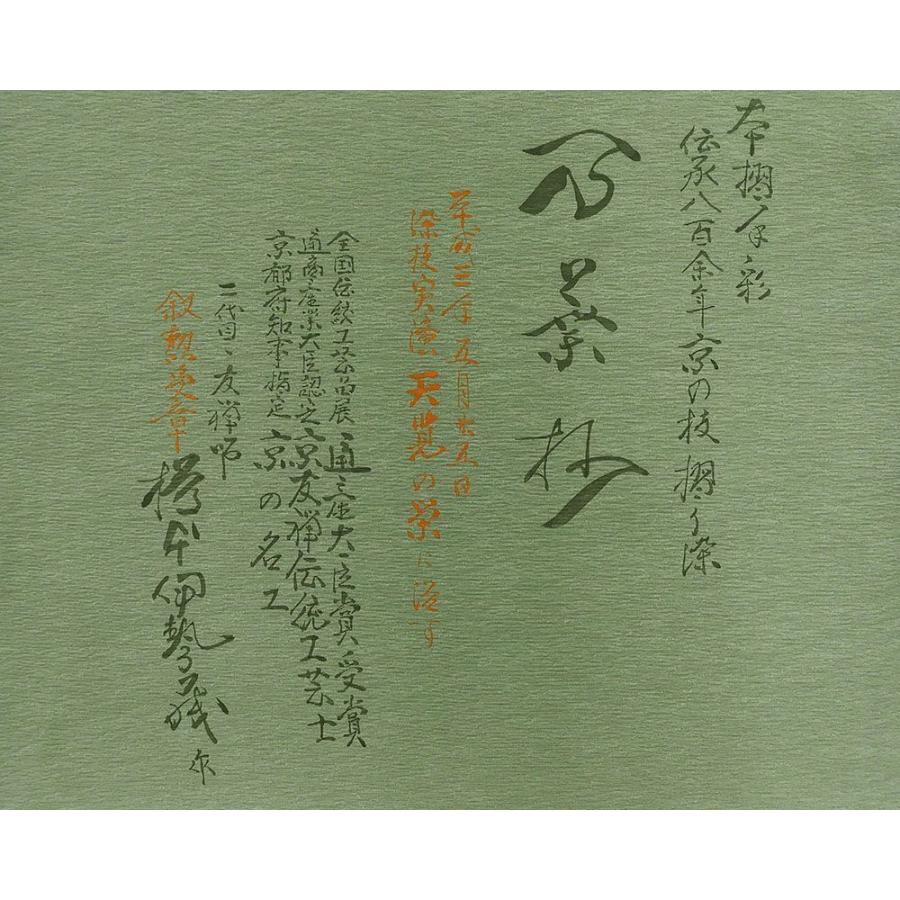 本摺手彩
伝承八百余年京の技摺り染
平成三年五月廿五日
染技実演天覧の栄に浴す
全国伝統工芸品展 通産大臣賞受賞
通商産業大臣認定京友禅伝統工芸士
京都府知事指定京の名工
二代目・友禅師
叙勲受章 本伊勢 作